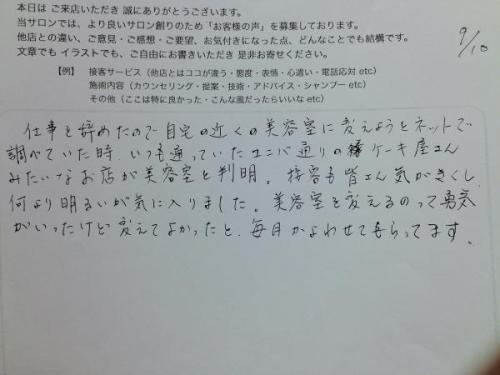 本日は ご来店いただき 誠にありがとうございます。
当サロンでは、より良いサロン創りのため「お客様の声」を募集しております。
他店との違い、ご意見・ご感想・ご要望、お気付きになった点、どんなことでも結構です。
文章でも イラストでも、ご自由にお書きいただき 是非お寄せください。
9/10
【例】 接客サービス（他店とはココが違う・態度・表情・心遣い・電話応対 etc）
施術内容（カウンセリング・提案・技術・アドバイス・シャンプー etc）
その他（ここは特に良かった・こんな風だったらいいな etc）
仕事を辞めたので自宅の近くの美容室に変えようとネットで
調べていた時、いつも通っていたユニバ通りのケーキ屋さん
みたいなお店が美容室と判明。接客も皆さん気がきくし
何より明るいが気に入りました。美容室を変えるのって勇気
がいったけど変えてよかったと、毎月かよわせてもらってます。